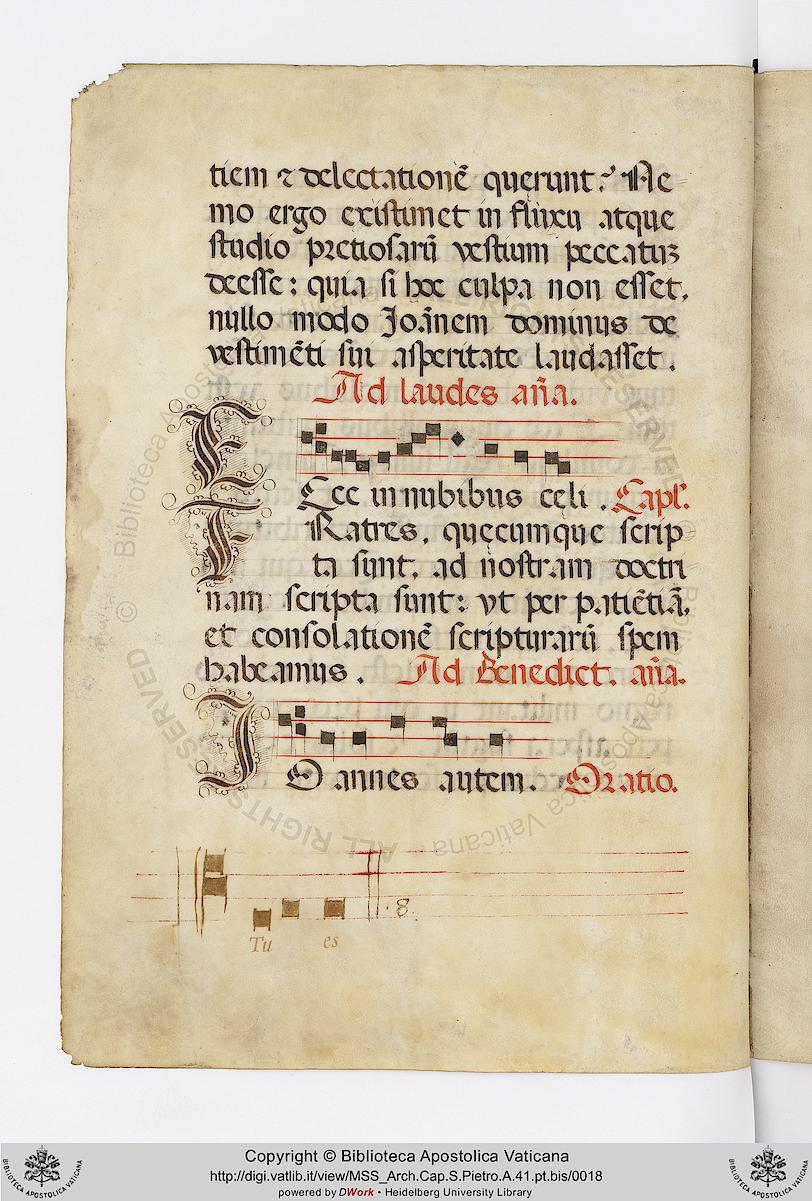 tiem ⁊ delectationē quęrunt? Ne
mo ergo existimet in fluxu atque
studio pretiosarū vestium peccatuꝫ
deesse: quia si hoc culpa non esset,
nullo modo Joānem dominus de
vestimēti sui asperitate laudasset.
Ad laudes aña.
Ecce in nubibus celi. Capl'.
FRatres, quęcumque scrip
ta sunt, ad nostram doctri
nam scripta sunt: vt per patiētiā,
et consolationē scripturarū spem
habeamus. Ad Benedict. aña.
JOannes autem. Oratio.
Tu es
.8.
Copyright © Biblioteca Apostolica Vaticana
http://digi.vatlib.it/view/MSS_Arch.Cap.S.Pietro.A.41.pt.bis/0018
powered by DWork • Heidelberg University Library
BIBLIOTECA APOSTOLICA VATICANA
BIBLIOTECA APOSTOLICA VATICANA
© Biblioteca Apostolica Vaticana ALL RIGHTS RESERVED